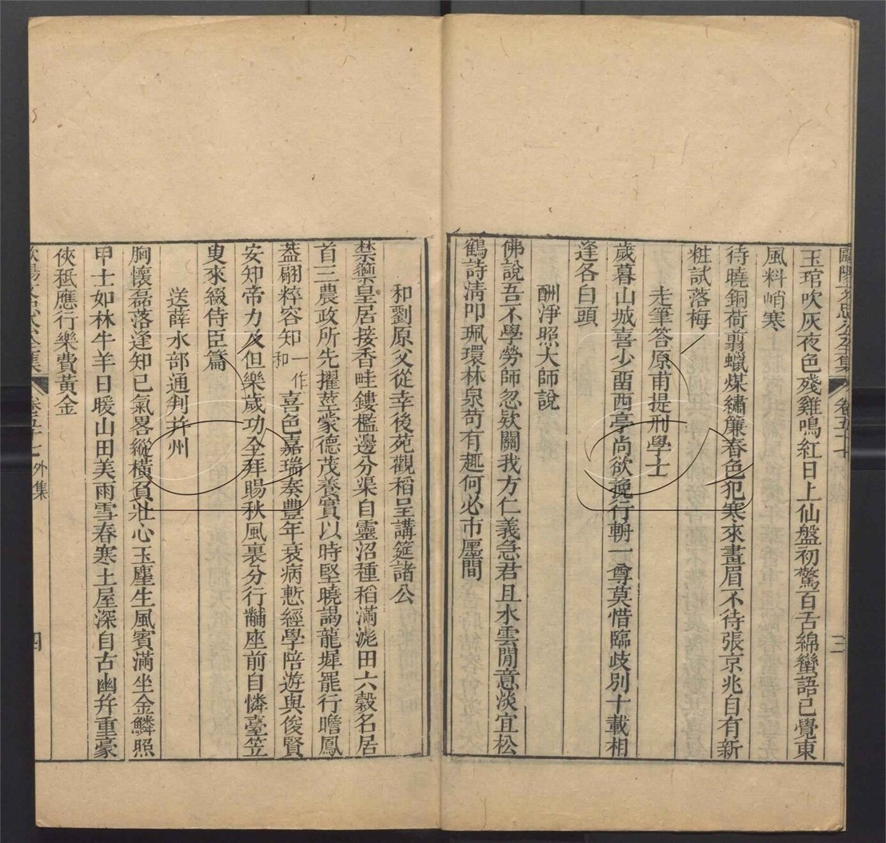 歐陽文忠公全集 卷五十七 三
玉琯吹灰夜色殘雞鳴紅日上仙盤初驚百舌綿蠻語已覺東
風料峭寒
待曉銅荷翦蠟煤繡簾春色犯寒來畫眉不待張京兆自有新
粧試落梅
走筆答原甫提刑學士
歲暮山城喜少留西亭尚欲挽行輈一尊莫惜臨歧別十載相
逢各白頭
酬淨照大師說
佛說吾不學勞師忽欵關我方仁義急君且水雲閒意淡宜松
鶴詩清叩珮環林泉苟有趣何必市廛間
和劉原父從幸後苑觀稻呈講筵諸公
禁籞皇居接香畦鏤檻邊分渠自靈沼種稻滿滮田六穀名居
首三農政所先擢莖蒙德茂養實以時堅曉謁龍墀罷行瞻鳳
葢翩粹容知一作和喜色嘉瑞奏豐年衰病慙經學陪遊與俊賢
安知帝力及但樂歲功全拜賜秋風裏分行黼座前自憐臺笠
叟來綴侍臣篇
送薛水部通判并州
胸懷磊落逢知己氣畧縱橫負壯心玉麈生風賓滿坐金鱗照
甲士如林牛羊日暖山田美雨雪春寒土屋深自古幽并重豪
俠秪應行樂費黃金
歐陽文忠公全集 卷五十七 外集 四